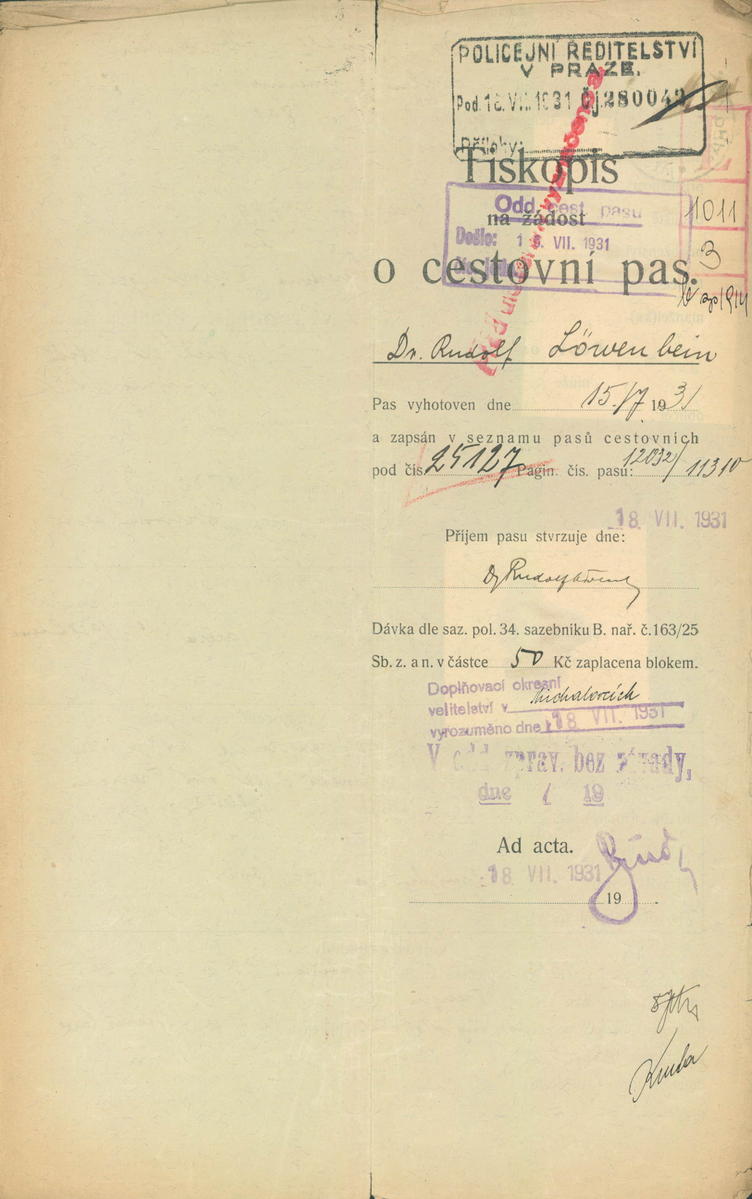 POLICEJNÍ ŘEDITELSTVÍ
V PRAZE.
Pod. 16. VII. 1931 Čj. 280042
Přílohy:
Tiskopis
Odd. cest. pasů
na žádost
1011
Došlo: 1 5. VII. 1931
3
o cestovní pas.
Dr. Rudolf Löwenbein
Pas vyhotoven dne 15./7 1931
a zapsán v seznamu pasů cestovních
pod čís. 25127 Pagin. čís. pasu: 12032/11310
18. VII. 1931
Příjem pasu stvrzuje dne:
Dr Rudolf Löwenbein
Dávka dle saz. pol. 34. sazebníku B. nař. č. 163/25
Sb. z. a n. v částce 50 Kč zaplacena blokem.
Doplňovací okresní
velitelství v Michalovcích
vyrozuměno dne 18. VII. 1931
V odd. zprav. bez závady,
dne / 19
Ad acta.
18. VII. 1931
19